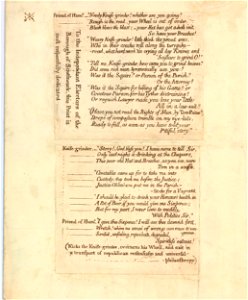 To the Independent Electors of the
Borough of Southwark this Print is
most respectfully dedicated
Friend of Hum.ʸ "Needy Knife-grinder! whither are you going?
Rough is the road, your Wheel is out of order.
Bleak blows the blast;— your Hat has got a hole in't
So have your Breeches!
"Weary Knife-grinder! little think the proud ones,
Who in their coaches roll along the turnpike-
-road, what hard work 'tis crying all day 'Knives and
Scissars to grind O!'
"Tell me Knife-grinder how came you to grind knives?
Did some rich man tyrannically use you?
Was it the Squire? or Parson of the Parish?
Or the Attorney?
"Was it the Squire for killing of his Game? or
Covetous Parson for his Tythes distraining?
Or roguish Lawyer made you lose your little
All in a law-suit?
"(Have you not read the Rights of Man, by Tom Paine?)
Drops of compassion tremble on my eye-lids,
Ready to fall, as soon as you have told your
Pitiful story."
Knife-grinder. "Story! God bless you! I have none to tell Sir,
Only last night a-drinking at the Chequers,
This poor old Hat and Breeches, as you see, were
Torn in a scuffle.
"Constables came up for to take me into
Custody; they took me before the Justice;
Justice Oldmixon put me in the Parish-
-Stocks for a Vagrant.
"I should be glad to drink your Honours health in
A Pot of Beer if you would give me Sixpence;
But for my part, I never love to meddle
With Politics Sir."
Friend of Hum.ʸ "I give thee Sixpence! I will see thee damn'd first,
Wretch! whom no sense of wrongs can rouse to vengeance
Sordid, unfeeling, reprobate, degraded,
Spiritless outcast!"
(Kicks the Knife-grinder, overturns his Wheel, and exit in
a transport of republican enthusiasm and universal
philanthropy.)